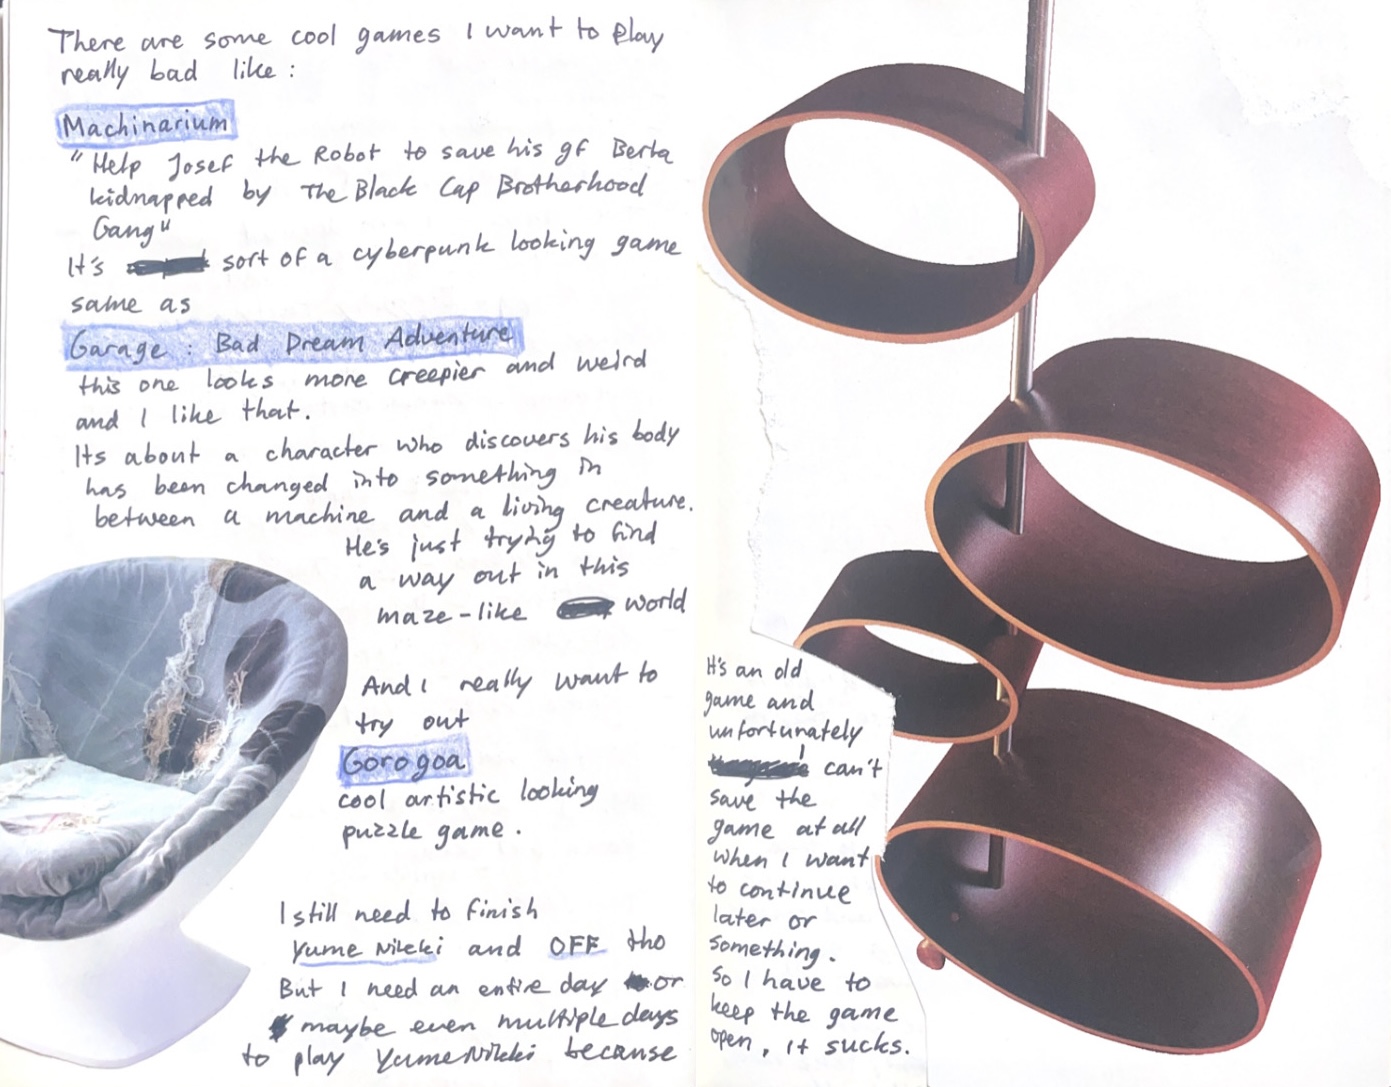 There are some cool games I want to play
really bad like :
Machinarium
"Help Josef the Robot to save his gf Berta
kidnapped by The Black Cap Brotherhood
Gang"
It's sort of a cyberpunk looking game
same as
Garage : Bad Dream Adventure
this one looks more creepier and weird
and I like that.
Its about a character who discovers his body
has been changed into something in
between a machine and a living creature.
He's just trying to find
a way out in this
maze-like world
And I really want to
try out
Gorogoa
cool artistic looking
puzzle game.
I still need to finish
Yume Nikki and OFF tho
But I need an entire day or
maybe even multiple days
to play Yume Nikki because
It's an old
game and
unfortunately
I can't
save the
game at all
when I want
to continue
later or
something.
So I have to
keep the game
open, it sucks.